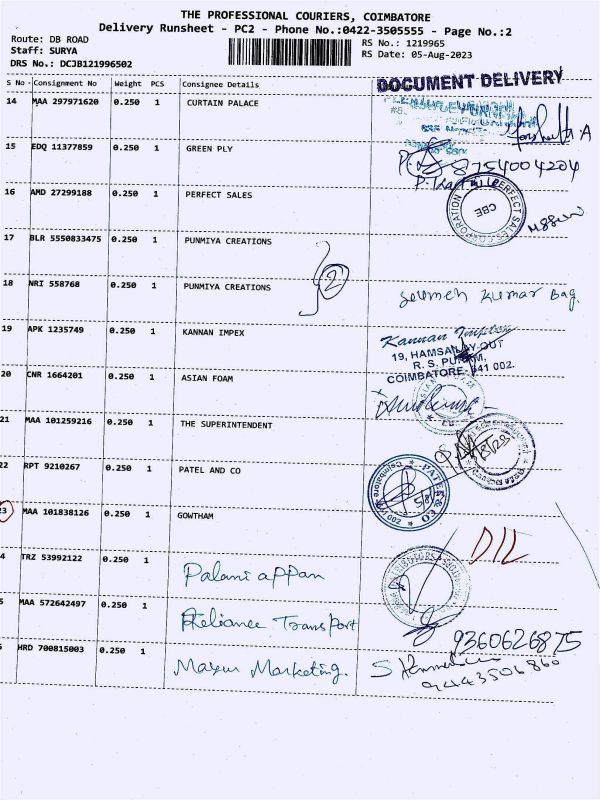 THE PROFESSIONAL COURIERS, COIMBATORE
Delivery Runsheet - PC2 - Phone No.:0422-3505555 - Page No.:2
Route: DB ROAD
Staff: SURYA
DRS No.: DCJB121996502
RS No.: 1219965
RS Date: 05-Aug-2023
S No Consignment No Weight PCS Consignee Details DOCUMENT DELIVERY
14 MAA 297971620 0.250 1 CURTAIN PALACE
15 EDQ 11377859 0.250 1 GREEN PLY 8754004204
16 AMD 27299188 0.250 1 PERFECT SALES
PERFECT SALES CORPORATION CBE
17 BLR 5550833475 0.250 1 PUNMIYA CREATIONS
2
18 NRI 558768 0.250 1 PUNMIYA CREATIONS Kumar Bag
19 APK 1235749 0.250 1 KANNAN IMPEX
Kannan Impex
19, HAMSA LAY-OUT
R. S. PURAM,
COIMBATORE-641 002.
20 CNR 1664201 0.250 1 ASIAN FOAM
21 MAA 101259216 0.250 1 THE SUPERINTENDENT
22 RPT 9210267 0.250 1 PATEL AND CO
PATEL & CO
23 MAA 101838126 0.250 1 GOWTHAM DIL
4 TRZ 53992122 0.250 1 Palani appan
5 MAA 572642497 0.250 1 Reliance Transport
9360626875
HRD 700815003 0.250 1 Marketing.
9443506860